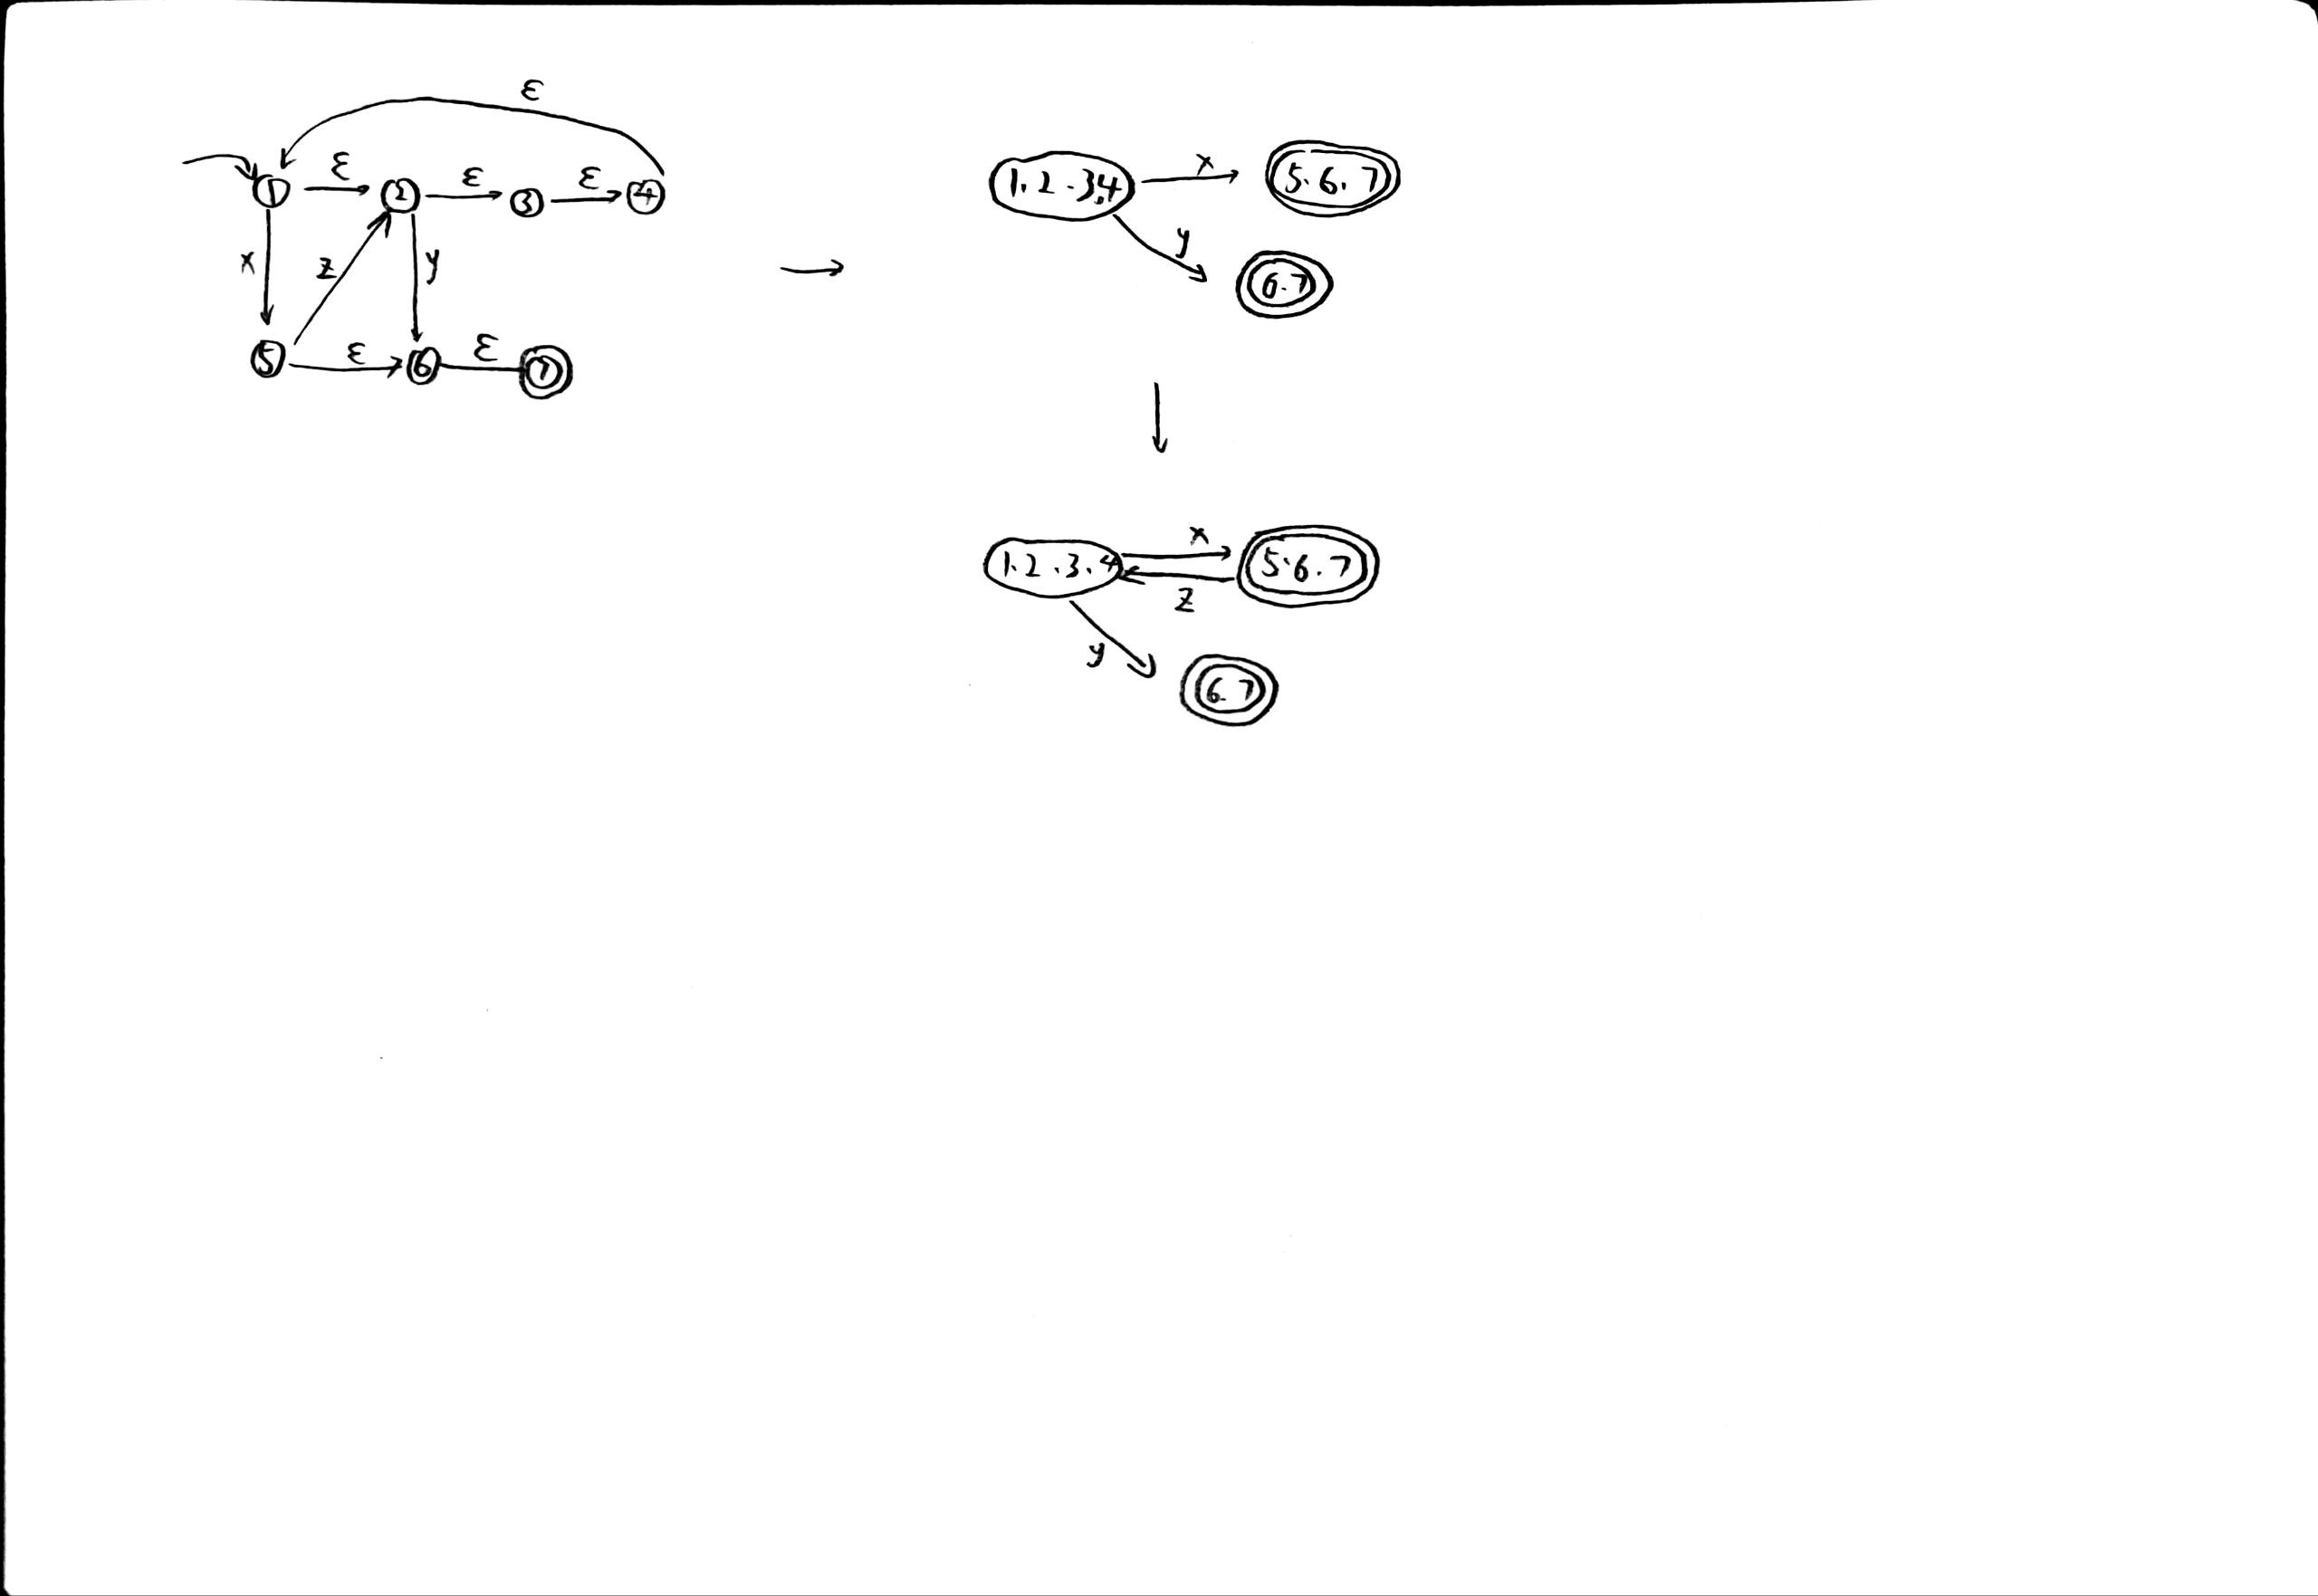 ε
1 ε 2 ε 3 ε 4
x z y
5 ε 6 ε 7
1.2.3.4 x 5.6.7
y
6.7
1.2.3.4 x 5.6.7
z
y
6.7